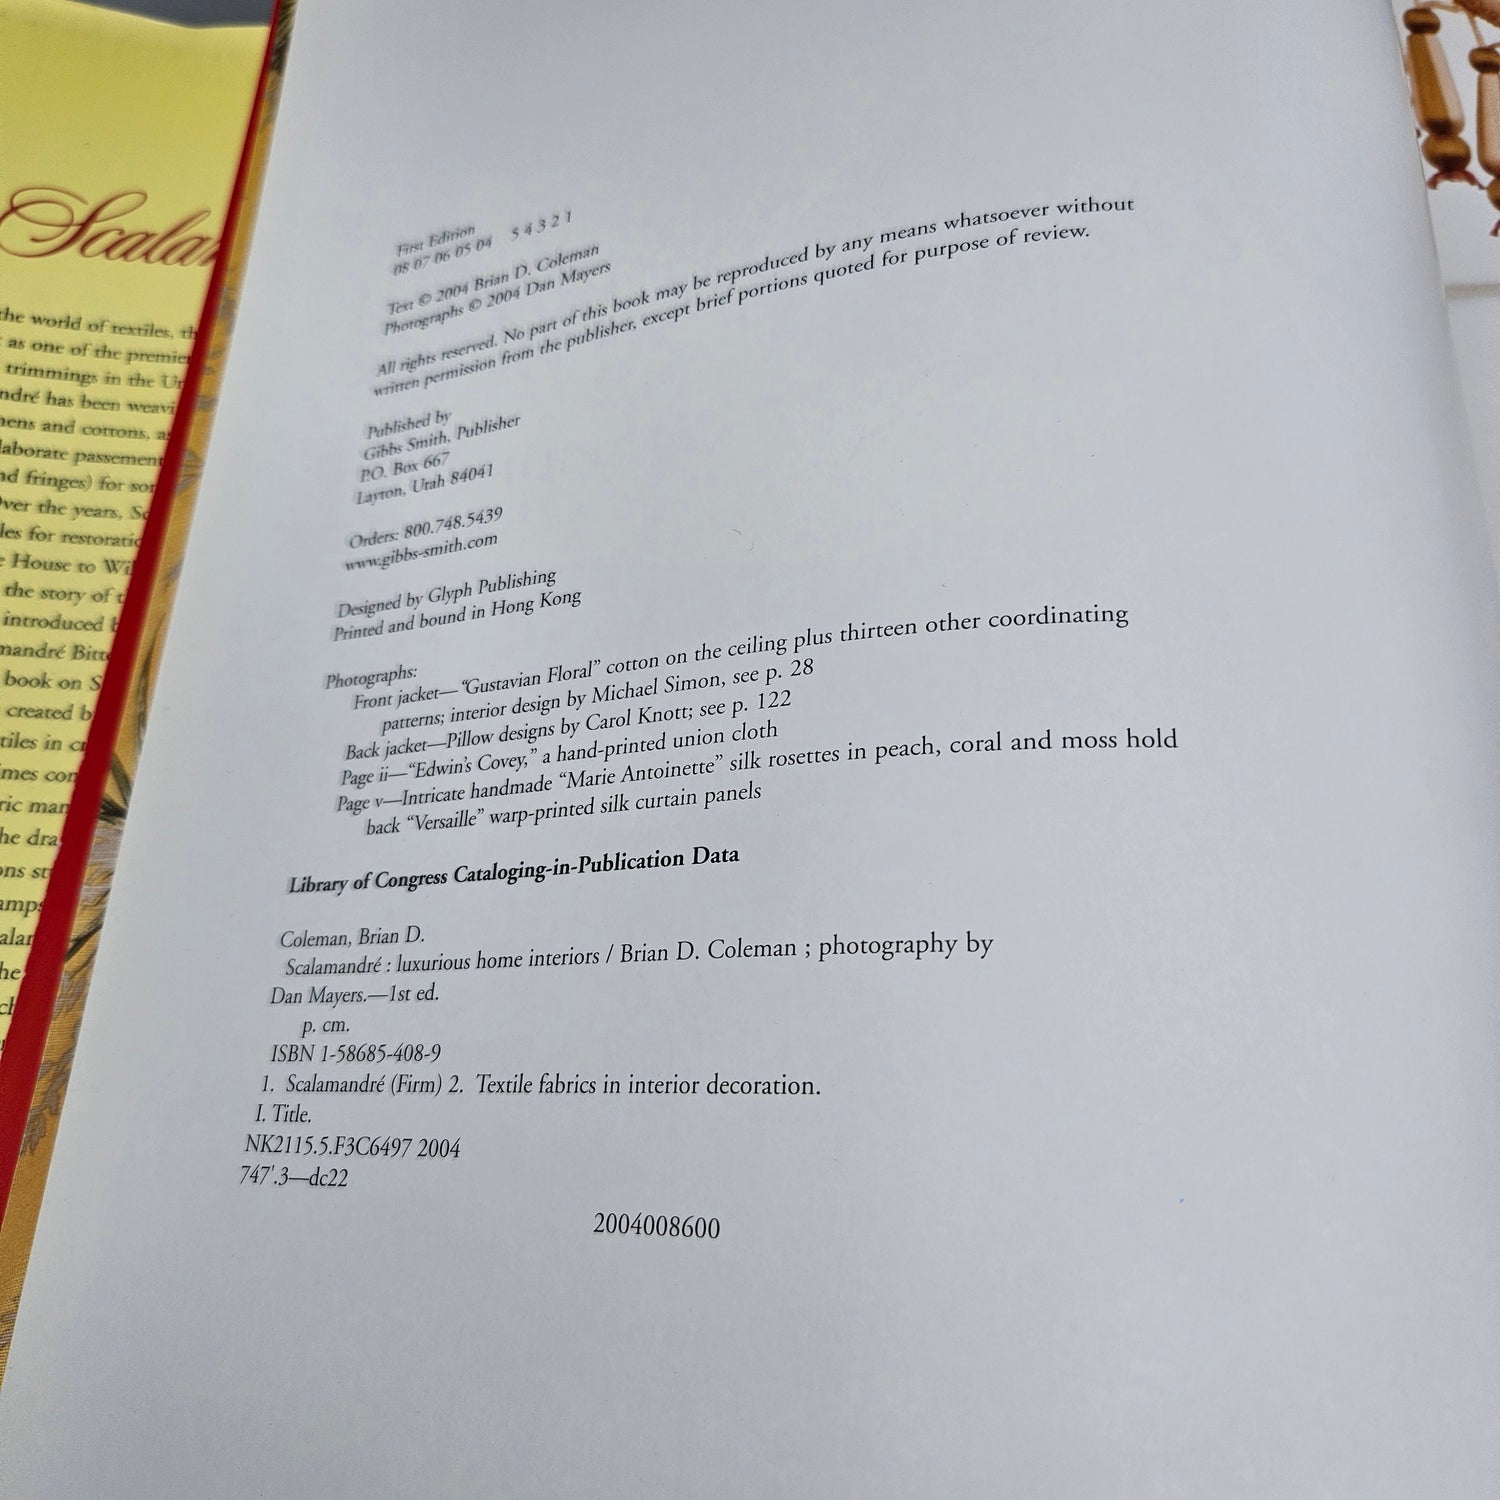 Scalam
the world of textiles, th
as one of the premier
trimmings in the Un
ndré has been weavi
nens and cottons, a
laborate passement
nd fringes) for som
Over the years, Sc
les for restoratio
House to Wil
the story of t
introduced b
mandré Bitte
book on S
created b
tiles in cr
imes con
ric man
he dra
ons st
amps
alar
he
First Edition
08 07 06 05 04 5 4 3 2 1
Text © 2004 Brian D. Coleman
Photographs © 2004 Dan Mayers
All rights reserved. No part of this book may be reproduced by any means whatsoever without
written permission from the publisher, except brief portions quoted for purpose of review.
Published by
Gibbs Smith, Publisher
P.O. Box 667
Layton, Utah 84041
Orders: 800.748.5439
www.gibbs-smith.com
Designed by Glyph Publishing
Printed and bound in Hong Kong
Photographs:
Front jacket—“Gustavian Floral” cotton on the ceiling plus thirteen other coordinating
patterns; interior design by Michael Simon, see p. 28
Back jacket—Pillow designs by Carol Knott; see p. 122
Page ii—“Edwin’s Covey,” a hand-printed union cloth
Page v—Intricate handmade “Marie Antoinette” silk rosettes in peach, coral and moss hold
back “Versaille” warp-printed silk curtain panels
Library of Congress Cataloging-in-Publication Data
Coleman, Brian D.
Scalamandré : luxurious home interiors / Brian D. Coleman ; photography by
Dan Mayers.—1st ed.
p. cm.
ISBN 1-58685-408-9
1. Scalamandré (Firm) 2. Textile fabrics in interior decoration.
I. Title.
NK2115.5.F3C6497 2004
747'.3—dc22
2004008600